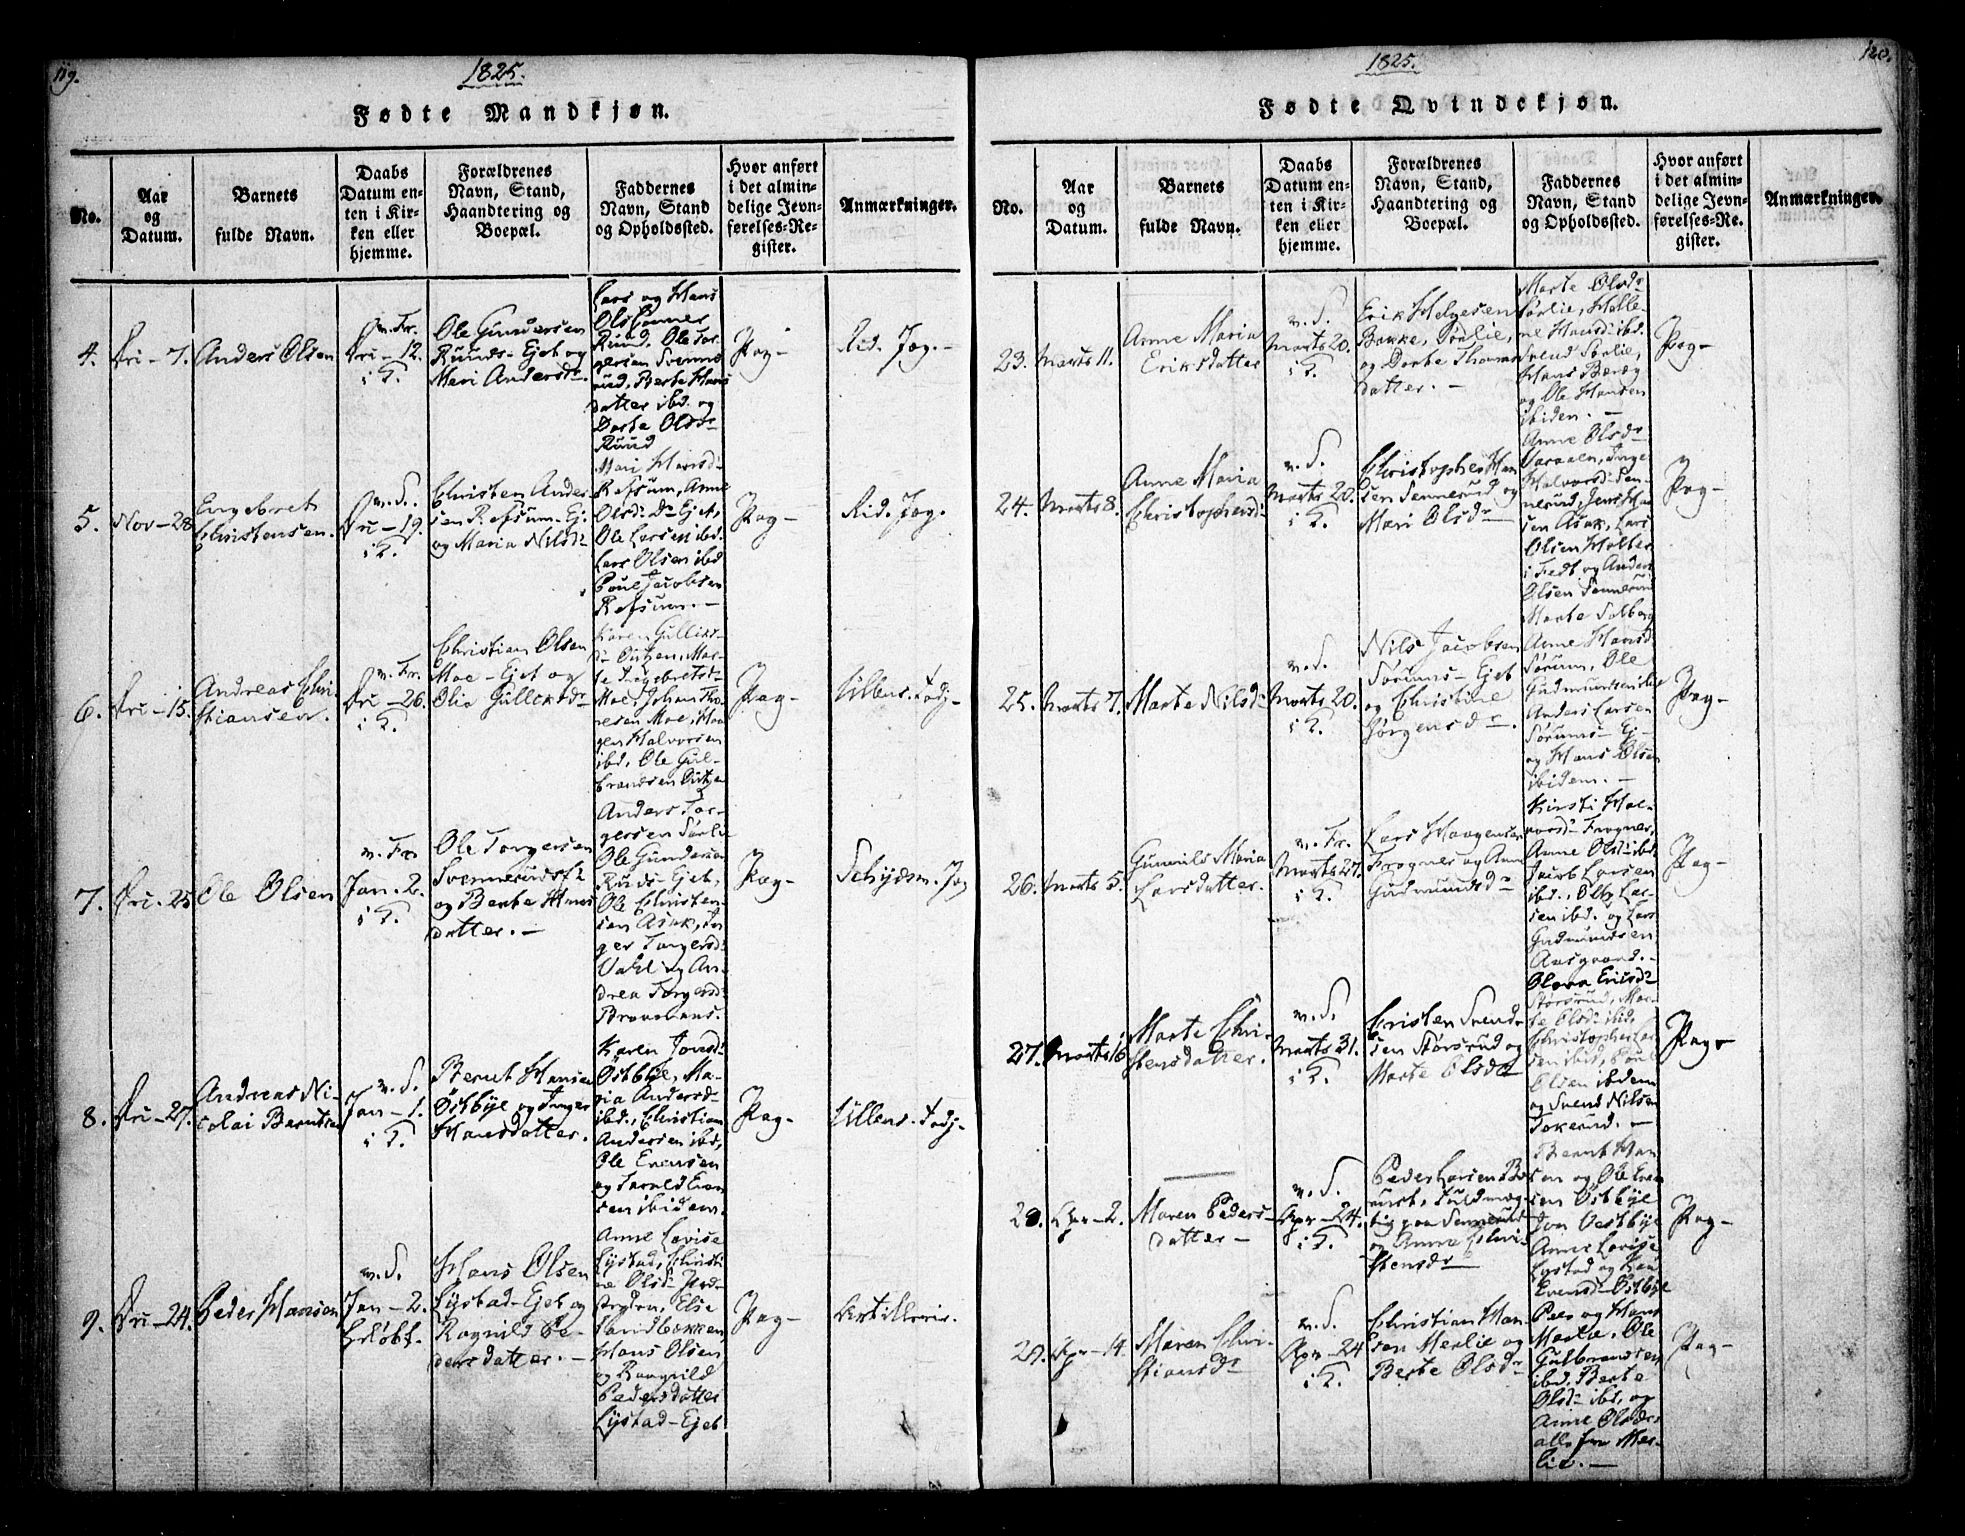 119.
1825.
Fødte Mandkjøn.
No.
Aar
og
Datum.
Barnets
fulde Navn.
Daabs
Datum en-
ten i Kir-
ken eller
hjemme.
Forældrenes
Navn, Stand,
Haandtering og
Boepæl.
Faddernes
Navn, Stand
og Opholdssted.
Hvor anført
i det almin-
delige Jevn-
førelses-Re-
gister.
Anmærkninger.
4.
7.
Anders Olsen
v. Fr.
12.
i K.
Ole Gundersen
Ruuds-Ejet og
Mari Andersdr
Lars og Hans
Ruud, Ole Tor-
gersen Svenne-
rud, Berte Hans
datter ibd. og
Dorte Olsdr
Ruud
Pag-
Rid. Jog.-
5.
Nov-28
Engebret
Christensen.
v. S.
19.
i K.
Christen Ander-
sen Refsum-Ej.
og Maria Nilsdr
Mari Hansd:
Refsum, Anne
Olsd: Do Ejet,
Ole Larsen ibd.
Lars Olsen ibd
Poul Jacobsen
Refsum.-
Pag-
Rid. Jog.
6.
15.
Andreas Chri-
stiansen.
v. Fr.
26.
i K.
Christian Olsen
Moe-Ejet og
Olia Gulleksdr
Karen Gulliks-
Moe, Johan
Moe, Haa-
gen Halvorsen
ibd, Ole Gul-
brandsen
Pag-
Ullens.
7.
25
Ole Olsen
v. Fr
Jan. 2.
i K.
Ole Torgersen
og Berte Hans
datter.-
Anders Tor-
gersen Sørli
Ole Gundersen
Ruuds-Ejet,
Ole Christen-
sen Asak, In-
ger Torgersd:
Dahl og An-
drea Torgersd:
Pag-
8.
27.
Andreas Ni-
colai Berntsen
v. S.
Jan-1.
i K.
Bernt Hansen
Østbye og Inger
Hansdatter.
Karen Jonsd:
Østbye, Ma-
ria Andersd:
ibd., Christian
Andersen ibd,
Ole Evensen
og Even-
sen ibidem.
Pag-
Ullens.
9.
24.
Peder Hansen
v. S.
Jan-2.
Hans Olsen
Lystad-Ejet og
Ragnild Pe-
dersdatter.-
Anne Lovise
Lystad, Christi-
ne Olsd:
Else
Hans Olsen
og Raagnild
Pedersdatter
Lystad-Ejet
Pag-
Artillerie.
120.
1825.
Fødte Qvindekjøn.
No.
Aar
og
Datum.
Barnets
fulde Navn.
Daabs
Datum en-
ten i Kir-
ken eller
hjemme.
Forældrenes
Navn, Stand,
Haandtering og
Boepæl.
Faddernes
Navn, Stand
og Opholdssted.
Hvor anført
i det almin-
delige Jevn-
førelses-Re-
gister.
Anmærkninger.
23.
Marts 11.
Anne Maria
Eriksdatter
v. S.
Marts 20.
i K.
Erik Helgesen
Bakke, Sørlie,
og Dorte Thomas
datter.-
Marte Olsdr
Sørlie, Helle-
ne Hansd: ibd.
Svend Sørlie,
Hans
og Ole Hansen
ibiden.-
Pag-
24.
Marts 8.
Anne Maria
Christophersd:
v. S.
Marts 20.
i K.
Christopher Han-
sen Sennerud og
Mari Olsdr
Anne Olsdr
Inge
Halvorsd: Sen-
nerud, Jens Han-
sen Asak, Lars
Olsen Holter
i Fedt og Anders
Olsen Sennerud
Pag-
25.
Marts 7.
Marte Nilsd:
v. S.
Marts 20.
i K.
Nils Jacobsen
Sørums-Ejet
og Christine
Jørgensdr.
Marte Solberg
Anne Hansd
Sørum, Ole
Gudmundsen ibd
Anders Larsen
Sørums-Ej-
og Hans Olsen
ibidem.-
Pag-
26.
Marts 5.
Gunnild Maria
Larsdatter.
v. Fr.
Marts 27.
i K.
Lars Haagensen
Frogner og Anne
Gudmundsdr
Kirsti Hal-
vorsd: Frogner,
Anne Olsd: ibd,
Jacob Larsen
ibd., Ole Lar-
sen ibd. og Lars
Gudmundsen
Aasgaard.-
Pag-
27.
Marts 16
Marte Chri-
stensdatter.
v. S.
Marts 31.
i K.
Cristen Svend-
sen Størsrud og
Marte Olsdr
Olava Ericsdr
Størsrud, Mar-
te Olsd: ibid,
Christopher Lar-
sen ibid, Poul
Olsen ibdem
og Svend Nilsen
Tokerud.-
Pag-
28.
Apr-2.
Maren Peders-
datter-
v. S.
Apr-24.
i K.
Peder Larsen
Fuldmæg-
tig paa Sennerud
og Anne Chri-
stensdr
Bernt Han-
sen og Ole Even-
sen Østbye
Jon Vestbye
Anne Lovise
Lystad og
Evensd-Østbye
Pag-
29.
Apr-14.
Maren Chri-
stiansdr
v. S.
Apr-24
i K.
Christian Han-
sen Merlie og
Berte Olsdr
Peer og Hans
Merlie, Ole
Gulbrandsen
ibd, Berte
Olsd: ibd, og
Anne Olsdr
alle fra Mer-
lie.-
Pag-